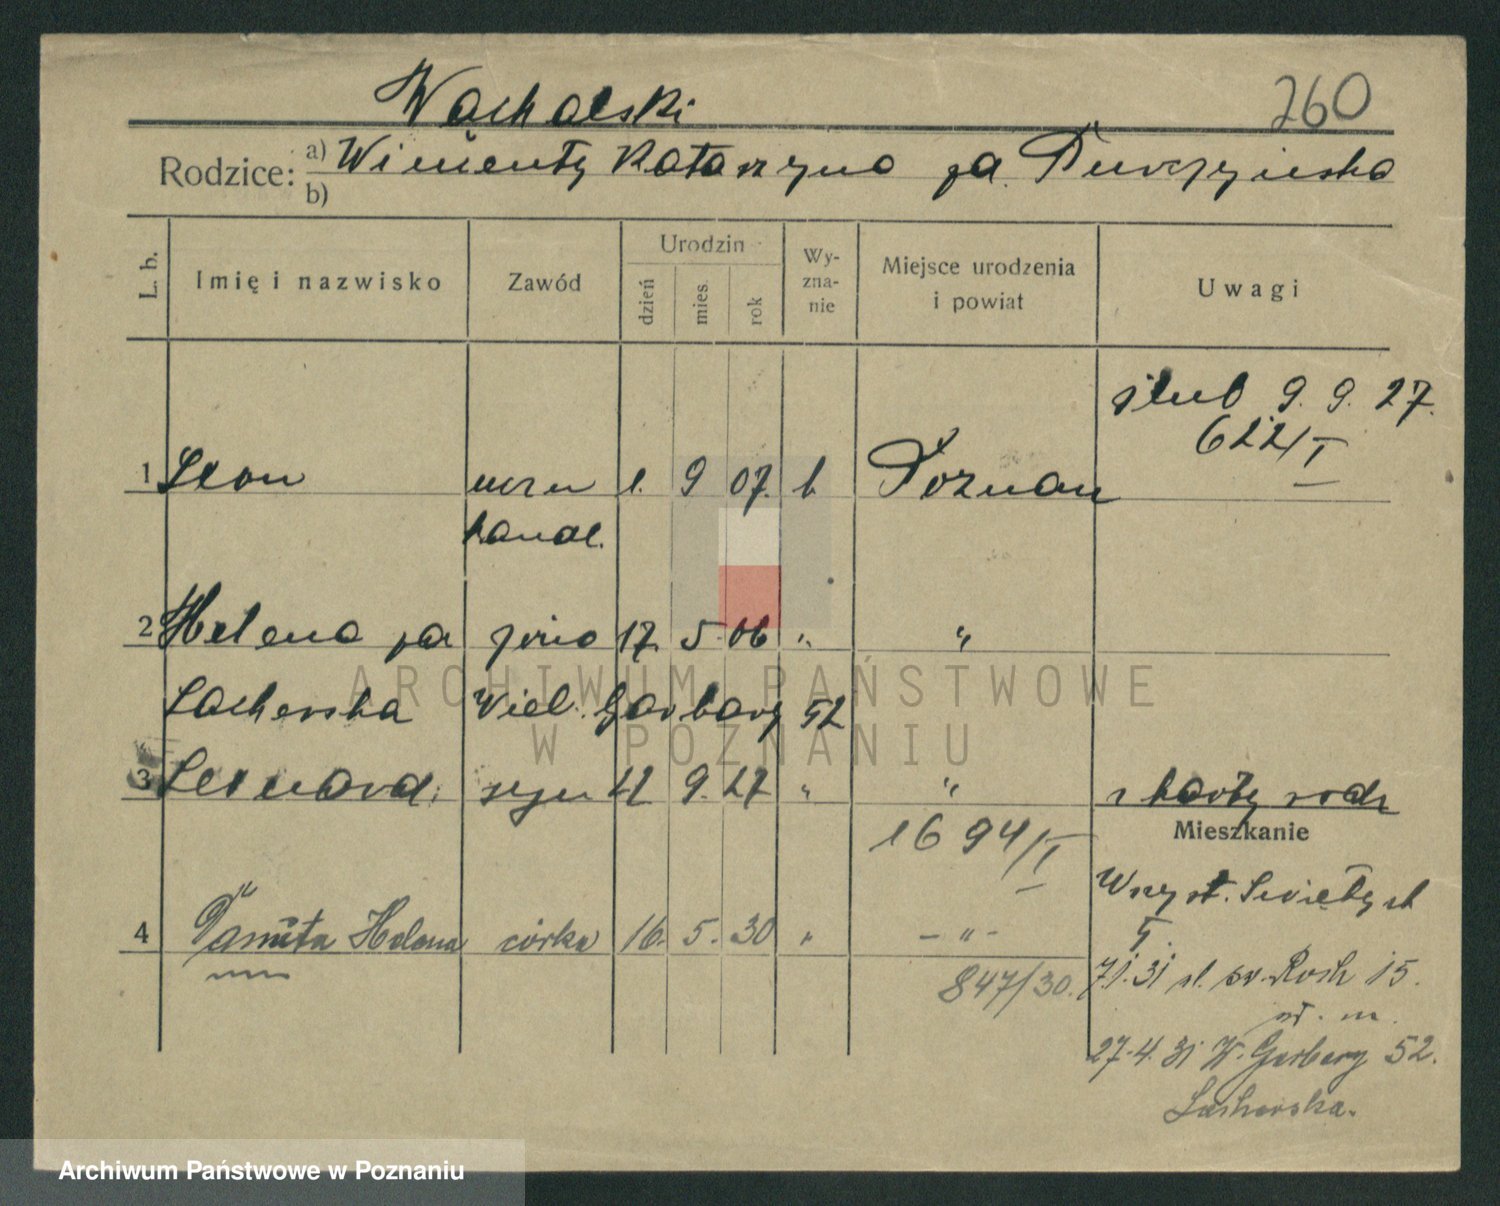 Wachalski
260
Rodzice: a) Wincenty Katarzyna za. Turczyńska
b)
L. b. Imię i nazwisko Zawód Urodzin dzień mies. rok Wy-zna-nie Miejsce urodzenia i powiat Uwagi
ślub 9. 9. 27.
622/I
1 Leon uczeń 1. 9 07. k Poznań
handl.
2 Helena za żona 17. 5. 06 " "
Lacherska Wiel. Garbary 52
3 Leonard. syn 22 9. 27 " " z karty rodz
1694/I
Mieszkanie
Wszyst. Świętych
5.
4 Danuta Helena córka 16. 5. 30 " - " -
847/30.
7.1.31 ul. św. Roch 15.
27.4.31 W. Garbary 52.
Lacherska.
ARCHIWUM PAŃSTWOWE
W POZNANIU
Archiwum Państwowe w Poznaniu